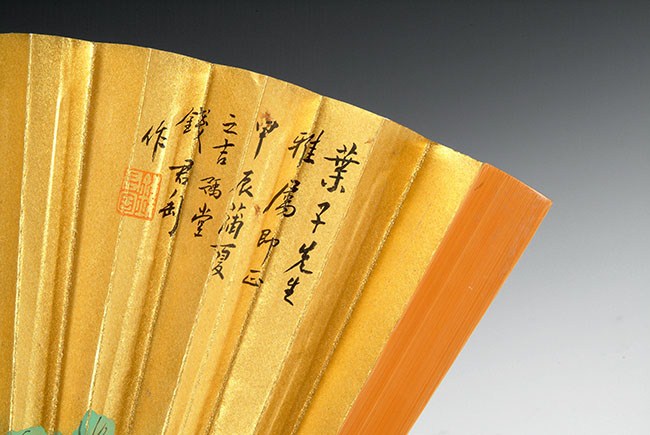 葉子先生
雅屬即正
甲辰蒲夏
之吉豫堂
錢君匋
作